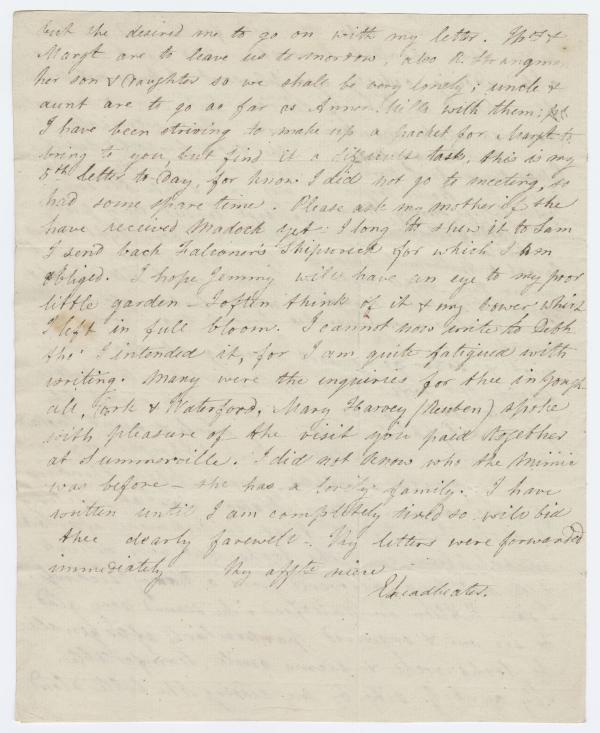 but she desired me to go on with my letter. &
Margt are to leave us to morrow, also R. Strangman
her son & Daughter so we shall be very lonely; uncle &
aunt are to go as far as Anner Mills with them;
I have been striving to make up a packet for Margt to
bring to you, but find it a difficult task, this is my
5th letter to day, for know I did not go to meeting, so
had some spare time. Please ask my mother if she
have received Madock yet: I long to shew it to Sam
I send back Falconer's Shipwreck for which I am
obliged. I hope Jemmy will have an eye to my poor
little garden - I often think of it & my bower which
I left in full bloom. I cannot now write to Debh
tho' I intended it, for I am quite fatigued with
writing. Many were the inquiries for thee in Yough
all, Cork & Waterford, Mary Harvey (Reuben) spoke
with pleasure of the visit you paid together
at Summerville. I did not know who the Minnie
was before - she has a lovely family. I have
written until I am completely tired so will bid
thee dearly farewell - Thy letters were forwarded
immediately Thy affte niece
ELeadbeater.